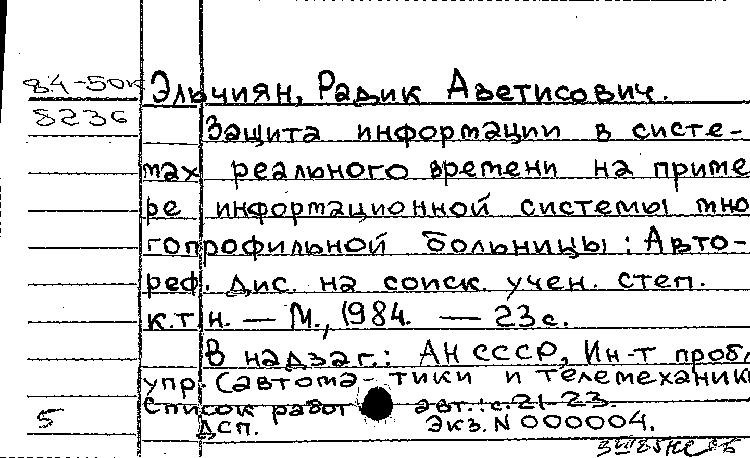 84-50к
8236
Эльчиян, Радик Аветисович.
Защита информации в систе-
мах реального времени на приме
ре информационной системы мно
гопрофильной больницы: Авто-
реф. дис. на соиск. учен. степ.
к.т.н. — М., 1984. — 23 с.
В надзаг.: АН СССР, Ин-т пробл
упр. (автома-тики и телемеханик
Список работ авт.: с. 21-23.
5 ДСП. Экз. N 000004.